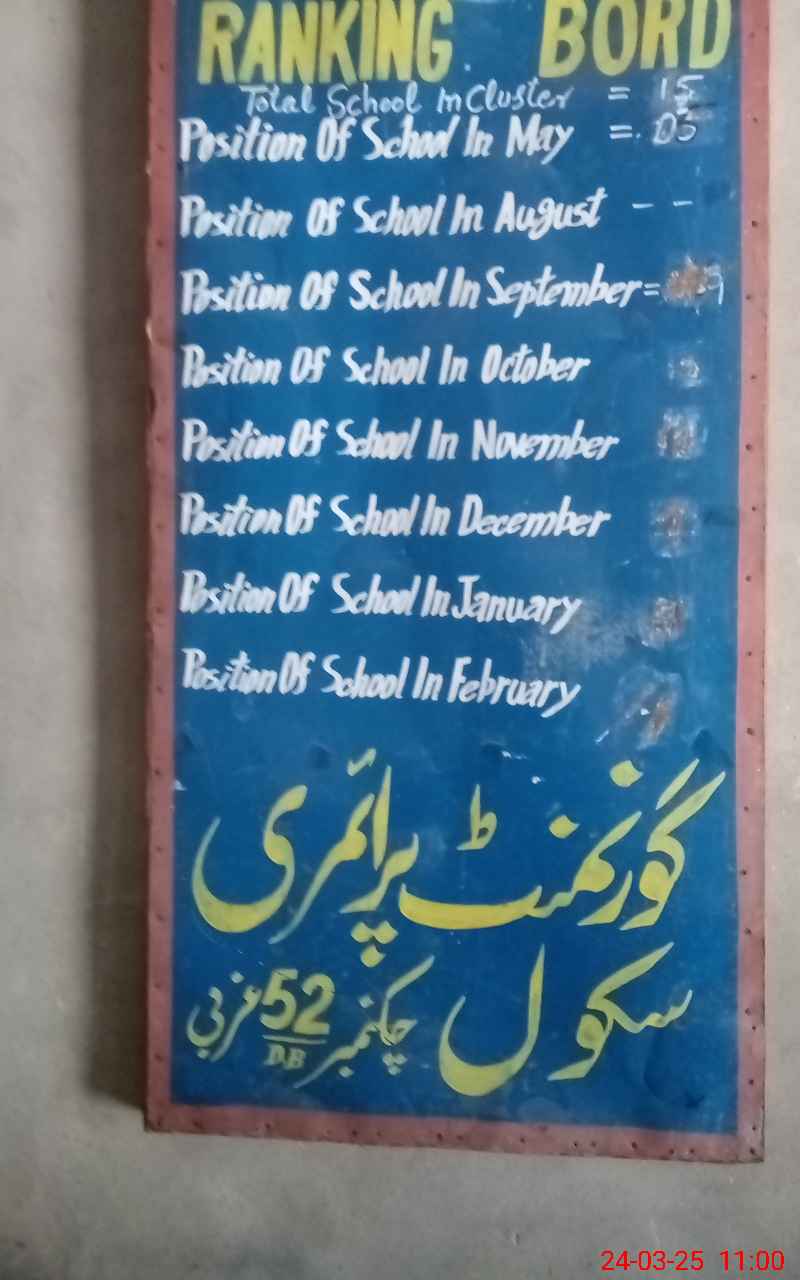 RANKING BORD
Total School in Cluster = 15
Position Of School In May = 03
Position Of School In August - -
Position Of School In September =
Position Of School In October
Position Of School In November
Position Of School In December
Position Of School In January
Position Of School In February
گورنمنٹ پرائمری
سکول چکنمبر 52/DB غربی
24-03-25 11:00